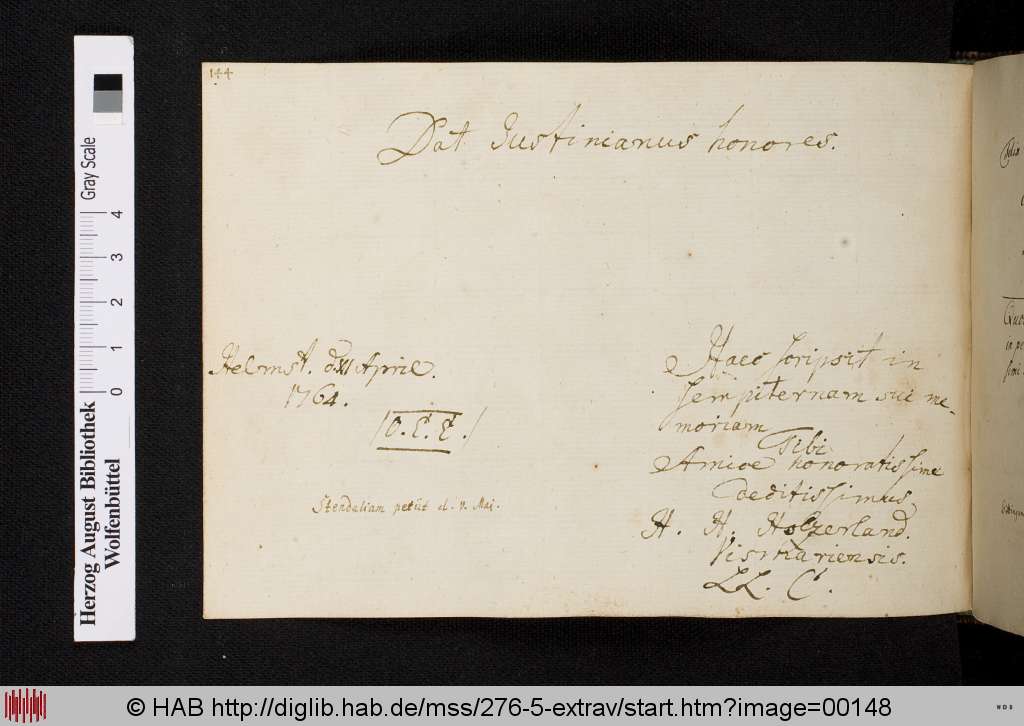 144
Dat Justinianus honores.
Helmst. d XI April.
1764.
/O. E. E./
Stendaliam petiit d. 7. Mai.
Haec scripsit in
sempiternam sui me-
moriam
Tibi
Amice honoratissime
deditissimus
H. H. Holzerland.
Vismariensis.
LL. C.
Herzog August Bibliothek
Wolfenbüttel
Gray Scale
0 1 2 3 4
© HAB http://diglib.hab.de/mss/276-5-extrav/start.htm?image=00148